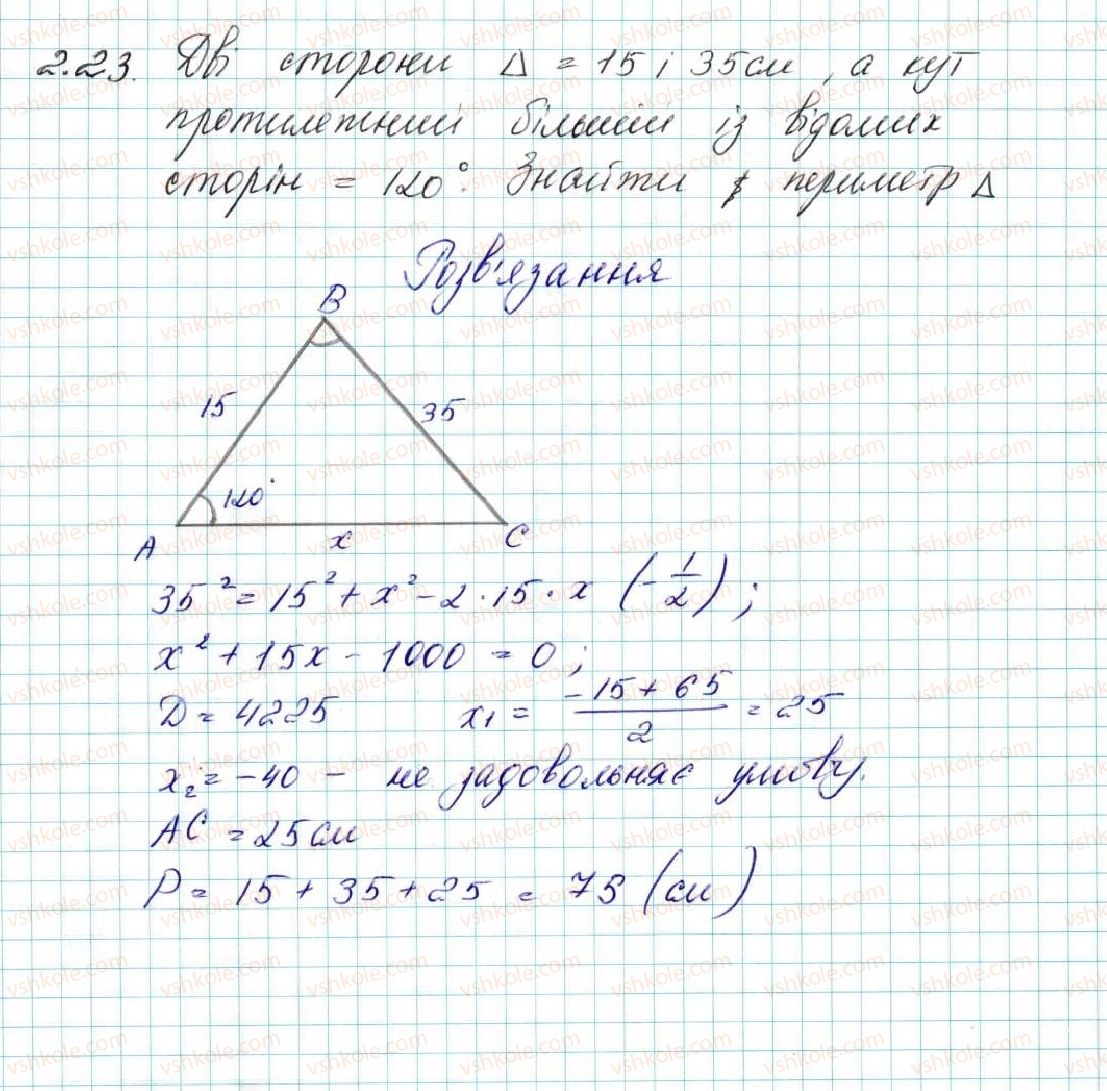 2.23. Дві сторони Δ = 15 і 35см, а кут
протилежний більшій із відомих
сторін = 120°. Знайти периметр Δ
Розв'язання
B
15
35
120°
A
x
C
35² = 15² + x² - 2 · 15 · x (-1/2);
x² + 15x - 1000 = 0;
D = 4225 x₁ = (-15 + 65)/2 = 25
x₂ = -40 - не задовольняє умову.
AC = 25 см
P = 15 + 35 + 25 = 75 (см)
vshkole.com